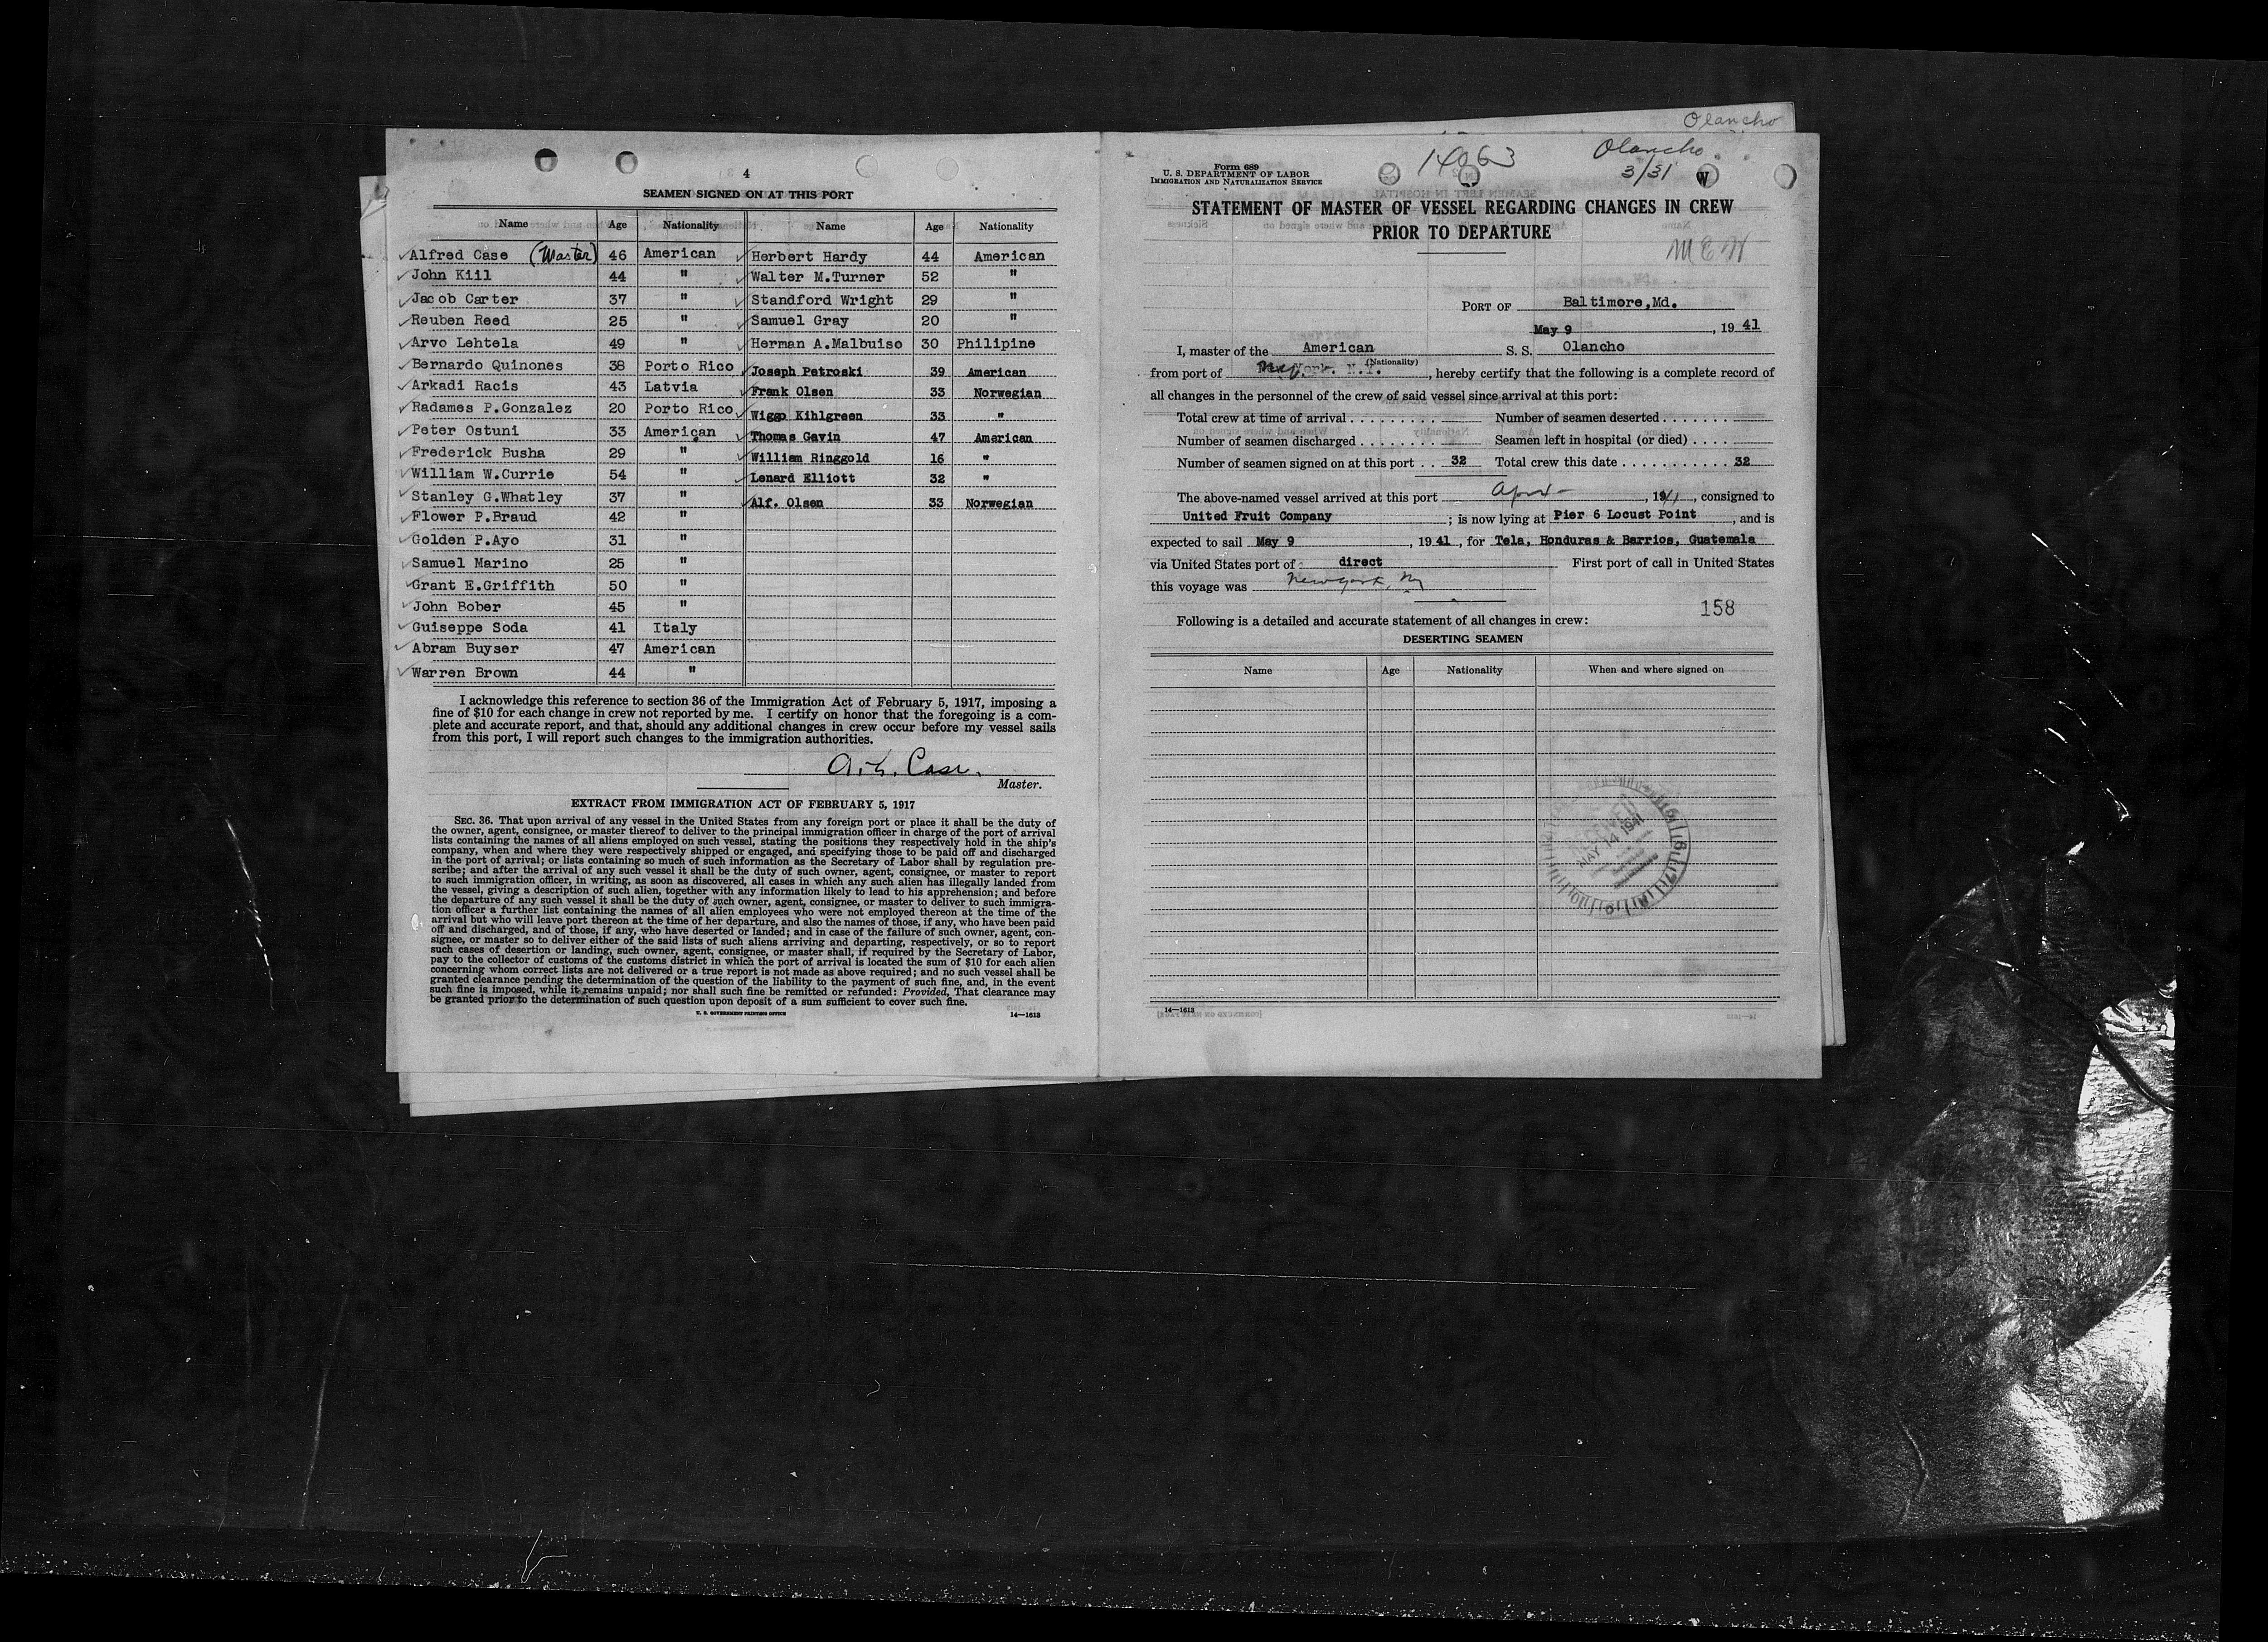 4
SEAMEN SIGNED ON AT THIS PORT
Name Age Nationality Name Age Nationality
Alfred Case (Master) 46 American Herbert Hardy 44 American
John Kiil 44 " Walter M.Turner 52 "
Jacob Carter 37 " Standford Wright 29 "
Reuben Reed 25 " Samuel Gray 20 "
Arvo Lehtela 49 " Herman A.Malbuiso 30 Philipine
Bernardo Quinones 38 Porto Rico Joseph Petroski 39 American
Arkadi Racis 43 Latvia Frank Olsen 33 Norwegian
Radames P.Gonzalez 20 Porto Rico Wiggo Kihlgreen 33 "
Peter Ostuni 33 American Thomas Gavin 47 American
Frederick Busha 29 " William Ringgold 16 "
William W.Currie 54 " Lenard Elliott 32 "
Stanley G.Whatley 37 " Alf. Olsen 33 Norwegian
Flower P.Braud 42 "
Golden P.Ayo 31 "
Samuel Marino 25 "
Grant E.Griffith 50 "
John Bober 45 "
Guiseppe Soda 41 Italy
Abram Buyser 47 American
Warren Brown 44 "
I acknowledge this reference to section 36 of the Immigration Act of February 5, 1917, imposing a
fine of $10 for each change in crew not reported by me. I certify on honor that the foregoing is a com-
plete and accurate report, and that, should any additional changes in crew occur before my vessel sails
from this port, I will report such changes to the immigration authorities.
Case.
Master.
EXTRACT FROM IMMIGRATION ACT OF FEBRUARY 5, 1917
SEC. 36. That upon arrival of any vessel in the United States from any foreign port or place it shall be the duty of
the owner, agent, consignee, or master thereof to deliver to the principal immigration officer in charge of the port of arrival
lists containing the names of all aliens employed on such vessel, stating the positions they respectively hold in the ship's
company, when and where they were respectively shipped or engaged, and specifying those to be paid off and discharged
in the port of arrival; or lists containing so much of such information as the Secretary of Labor shall by regulation pre-
scribe; and after the arrival of any such vessel it shall be the duty of such owner, agent, consignee, or master to report
to such immigration officer, in writing, as soon as discovered, all cases in which any such alien has illegally landed from
the vessel, giving a description of such alien, together with any information likely to lead to his apprehension; and before
the departure of any such vessel it shall be the duty of such owner, agent, consignee, or master to deliver to such immigra-
tion officer a further list containing the names of all alien employees who were not employed thereon at the time of the
arrival but who will leave port thereon at the time of her departure, and also the names of those, if any, who have been paid
off and discharged, and of those, if any, who have deserted or landed; and in case of the failure of such owner, agent, con-
signee, or master so to deliver either of the said lists of such aliens arriving and departing, respectively, or so to report
such cases of desertion or landing, such owner, agent, consignee, or master shall, if required by the Secretary of Labor,
pay to the collector of customs of the customs district in which the port of arrival is located the sum of $10 for each alien
concerning whom correct lists are not delivered or a true report is not made as above required; and no such vessel shall be
granted clearance pending the determination of the question of the liability to the payment of such fine, and, in the event
such fine is imposed, while it remains unpaid; nor shall such fine be remitted or refunded: Provided, That clearance may
be granted prior to the determination of such question upon deposit of a sum sufficient to cover such fine.
U. S. GOVERNMENT PRINTING OFFICE 14—1613
Olancho
Form 689
U. S. DEPARTMENT OF LABOR
IMMIGRATION AND NATURALIZATION SERVICE
14063
Olancho
3/31 W
STATEMENT OF MASTER OF VESSEL REGARDING CHANGES IN CREW
PRIOR TO DEPARTURE
M E W
PORT OF Baltimore,Md.
May 9, 1941
I, master of the American S. S. Olancho
(Nationality)
from port of N.Y., hereby certify that the following is a complete record of
all changes in the personnel of the crew of said vessel since arrival at this port:
Total crew at time of arrival . . . . . . . . . Number of seamen deserted . . . . . . .
Number of seamen discharged . . . . . . . . Seamen left in hospital (or died) . . . .
Number of seamen signed on at this port . . 32 Total crew this date . . . . . . . . . . . 32
The above-named vessel arrived at this port , 1941, consigned to
United Fruit Company ; is now lying at Pier 6 Locust Point , and is
expected to sail May 9 , 1941, for Tela, Honduras & Barrios, Guatemala
via United States port of direct First port of call in United States
this voyage was New York, Ny
158
Following is a detailed and accurate statement of all changes in crew:
DESERTING SEAMEN
Name Age Nationality When and where signed on
RECEIVED
MAY 14 1941
14—1613